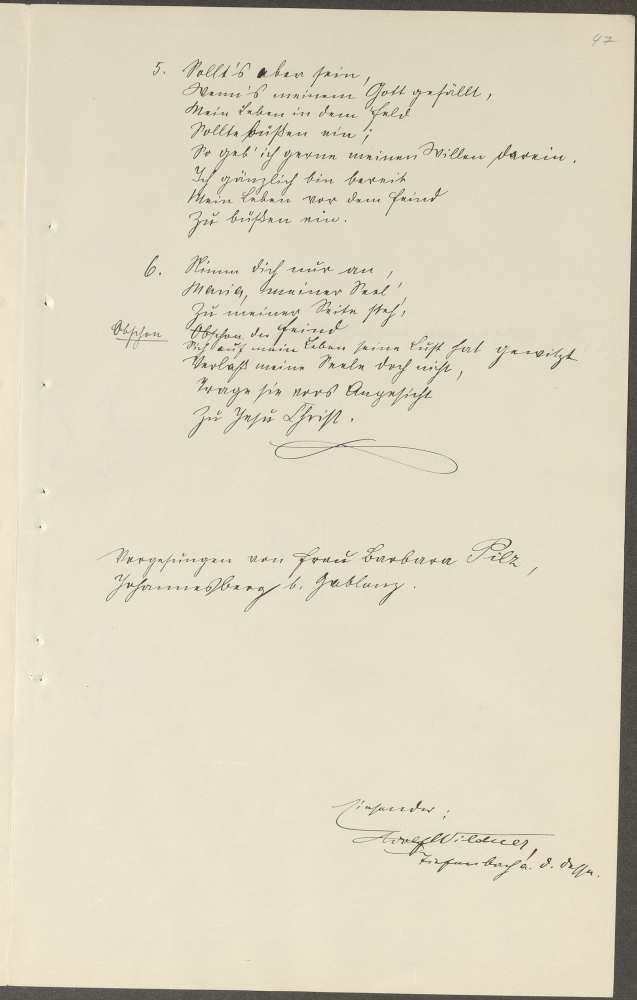 47
5. Sollt's aber sein,
Wenn's meinem Gott gefällt,
Mein Leben in dem Feld
Sollte büßen ein;
So geb' ich gerne meinen Willen darein.
Ich gänzlich bin bereit
Mein Leben vor dem Feind
Zu büßen ein.
6. Nimm dich nur an,
Maria, meiner Seel'
Zu meiner Seite steh,
Obschon Obschon der Feind
Sich auf mein Leben seine Lust hat gewitzt
Verlaß meine Seele doch nicht,
Trage sie vors Angesicht
Zu Jesu Christ.
Vorgesungen von Frau Barbara Pilz,
Johannesberg b. Gablonz.
Einsender:
Adolf Wildner,
Tiefenbach a. d. Desse.